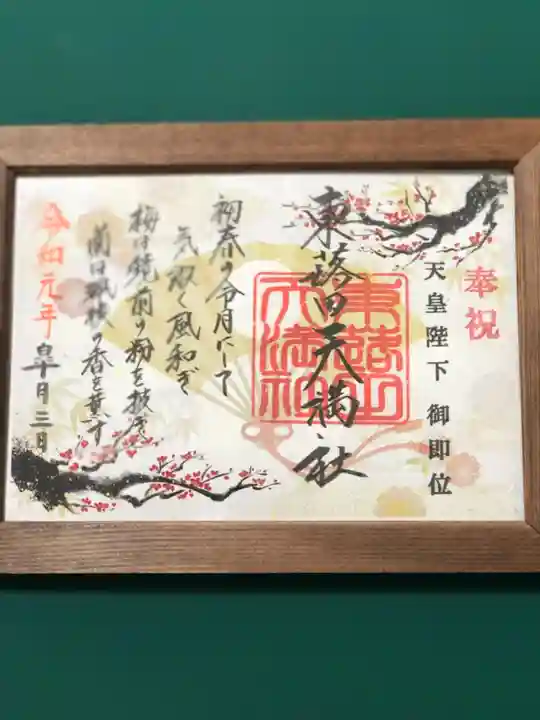 奉祝
天皇陛下 御即位
東落田天満社
東落田天満社
初春の令月にして
気淑く風和ぎ
梅は鏡前の粉を披き
蘭は珮後の香を薫す
令和元年 皐月三日